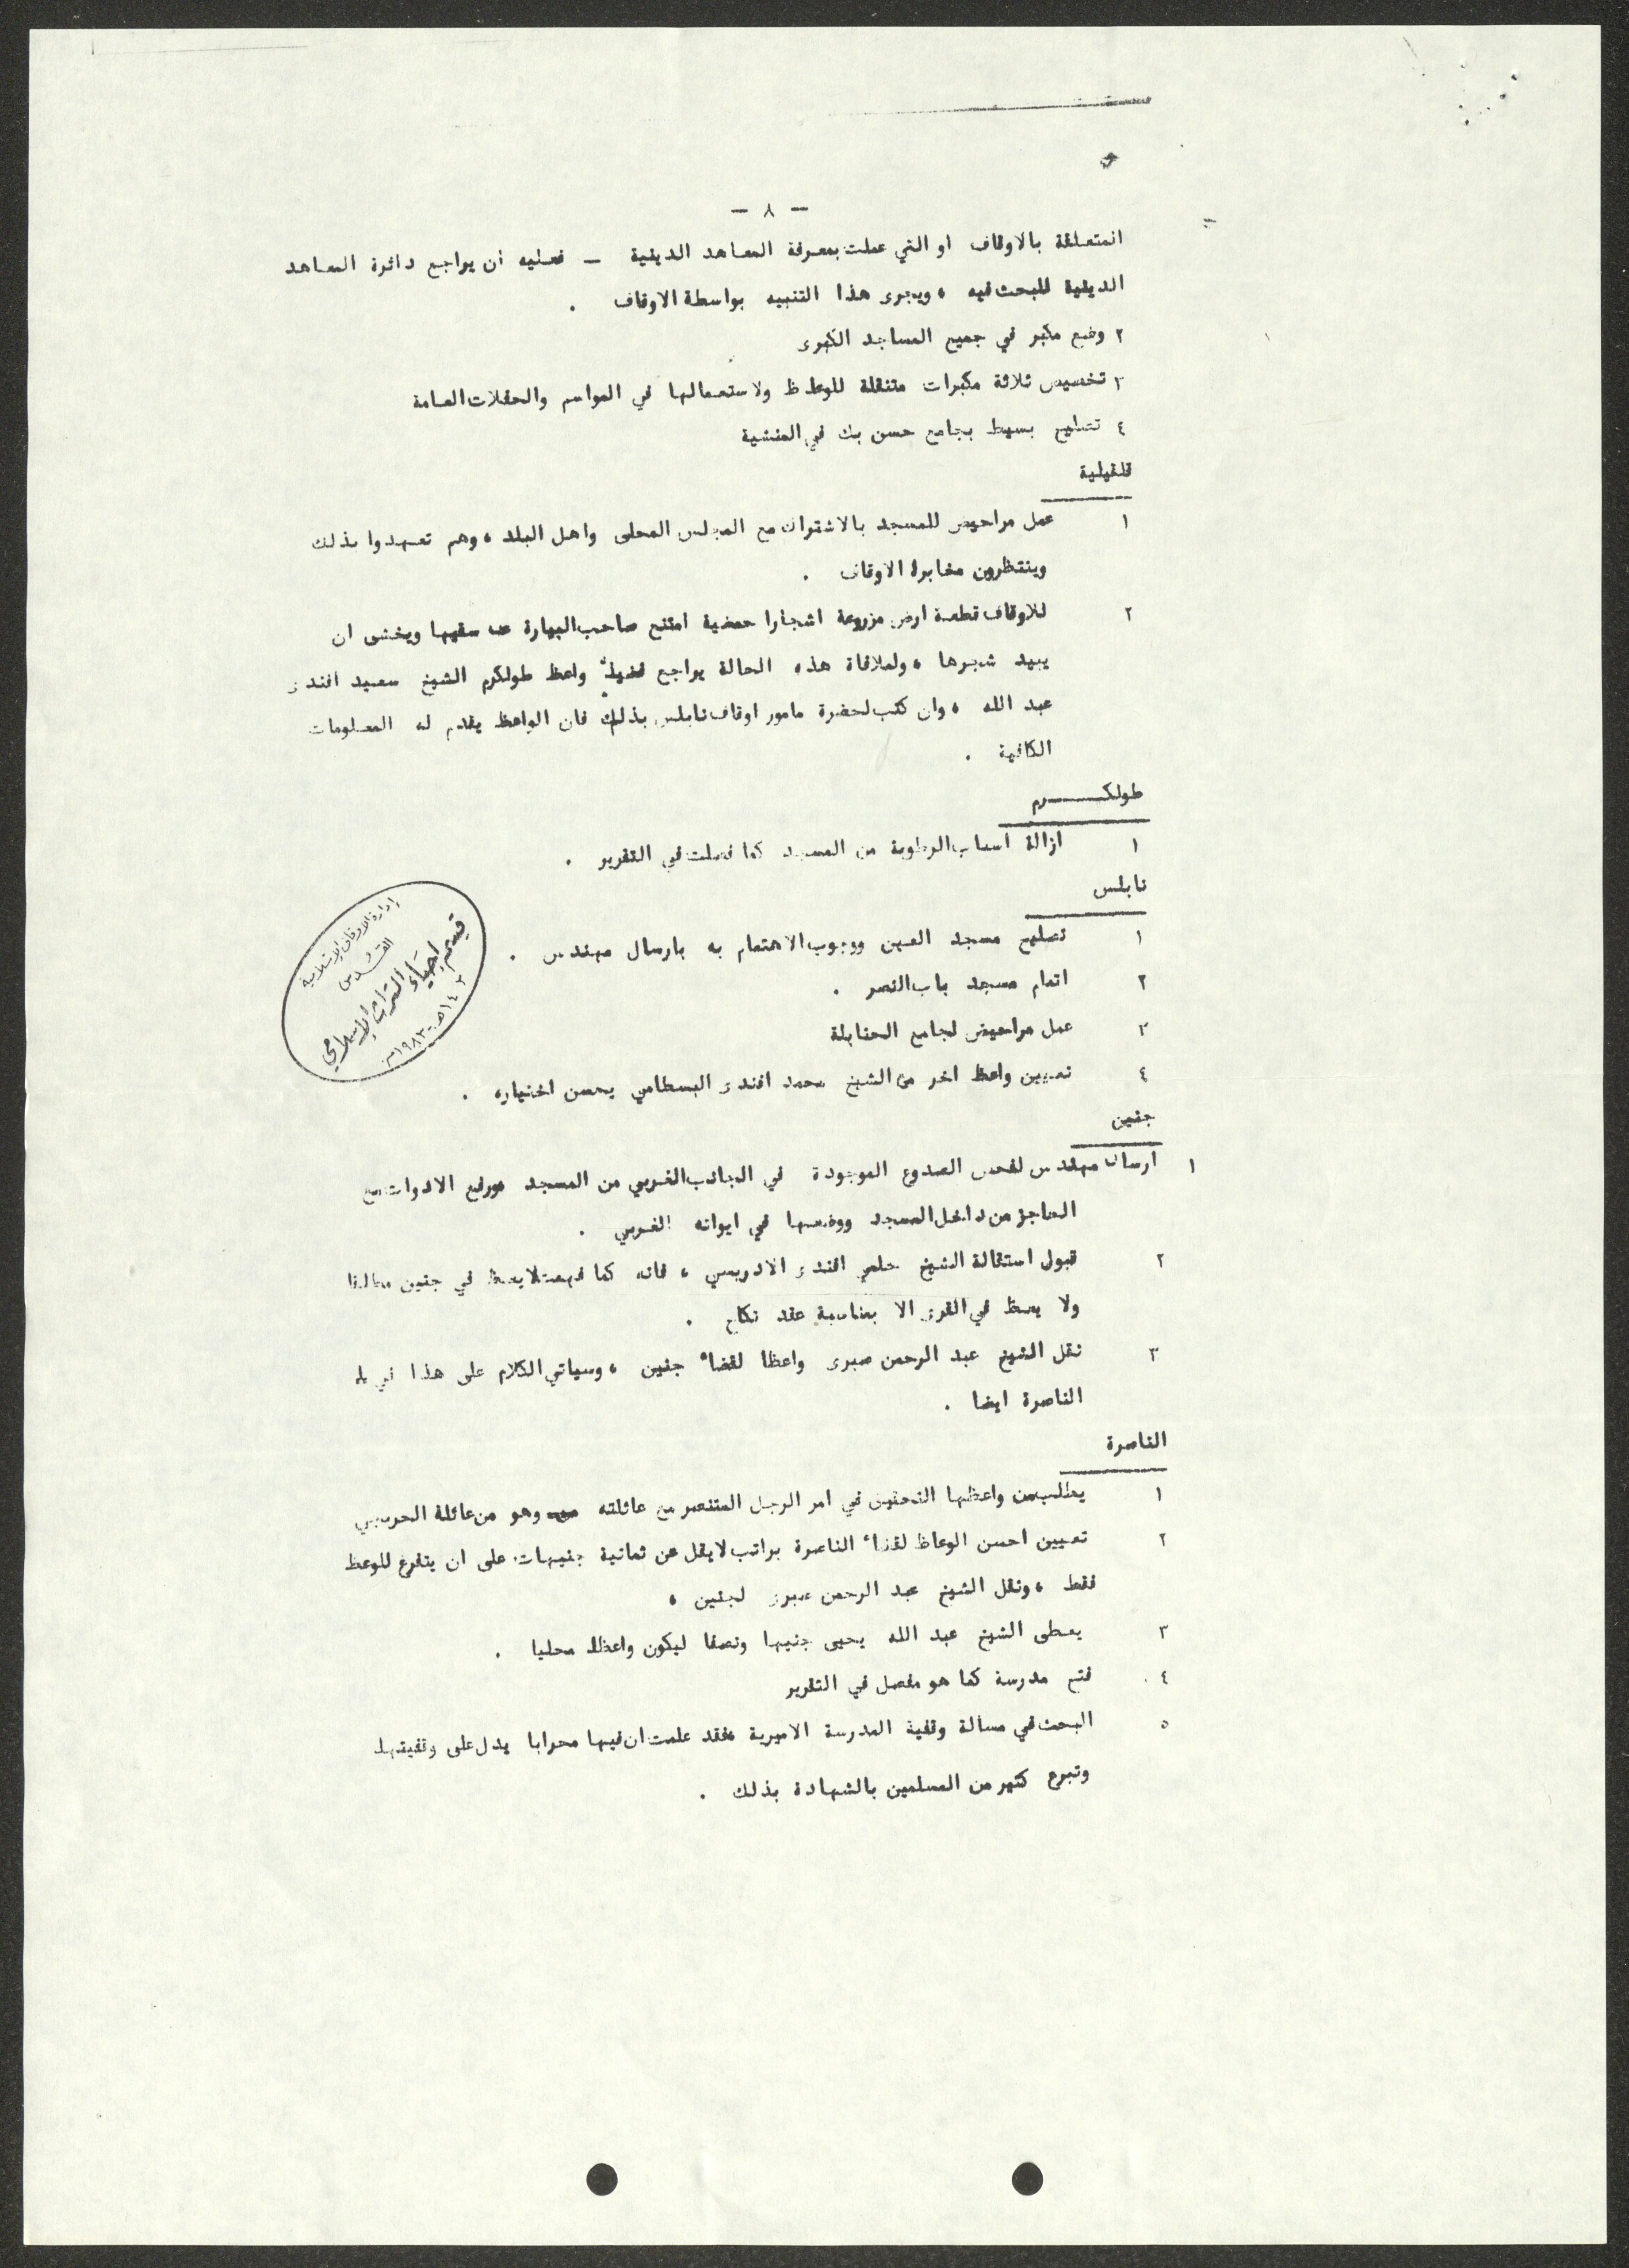 - ٨ -
المتعلقة بالاوقاف او التي عملت بمعرفة المعاهد الدينية - فعليه ان يراجع دائرة المعاهد
الدينية للبحث فيه ، ويجرى هذا التنبيه بواسطة الاوقاف .
٢ وضع مكبر في جميع المساجد الكبرى
٣ تخصيص ثلاثة مكبرات متنقلة للوعاظ ولاستعمالها في المواسم والحفلات العامة
٤ تصليح بسيط بجامع حسن بك في المنشية
قلقيلية
١ عمل مراحيض للمسجد بالاشتراك مع المجلس المحلى واهل البلد ، وهم تعهدوا بذلك
وينتظرون مخابرة الاوقاف .
٢ للاوقاف قطعة ارض مزروعة اشجارا حمضية امتنع صاحب البيارة عن سقيها ويخشى ان
يبيد شجرها ، ولملافاة هذه الحالة يراجع واعظ طولكرم الشيخ سعيد افندى
عبد الله ، وان كتب لحضرة مامور اوقاف نابلس بذلك فان الواعظ يقدم له المعلومات
الكافية .
طولكرم
١ ازالة اسباب الرطوبة من المسجد كما فصلت في التقرير .
نابلس
١ تصليح مسجد العين ووجوب الاهتمام به بارسال مهندس .
٢ اتمام مسجد باب النصر .
٣ عمل مراحيض لجامع الحنابلة
٤ تعيين واعظ اخر مع الشيخ محمد افندى البسطامي يحسن اختياره .
إدارة الأوقاف الإسلامية
القدس
قسم إحياء التراث الإسلامي
١٤٠٣هـ-١٩٨٣م
جنين
١ ارسال مهندس لفحص الصدوع الموجودة في الجانب الغربي من المسجد ورفع الادوات مع
الحاجز من داخل المسجد ووضعها في ايوانه الغربي .
٢ قبول استقالة الشيخ حلمي افندى الادريسي ، فانه كما فهمت لا يعظ في جنين مطلقا
ولا يعظ في القرى الا بمناسبة عقد نكاح .
٣ نقل الشيخ عبد الرحمن صبرى واعظا لقضاء جنين ، وسياتي الكلام على هذا في
الناصرة ايضا .
الناصرة
١ يطلب من واعظها التحقيق في امر الرجل المتنصر مع عائلته وهو من عائلة
٢ تعيين احسن الوعاظ لقضاء الناصرة براتب لا يقل عن ثمانية جنيهات على ان يتفرغ للوعظ
فقط ، ونقل الشيخ عبد الرحمن صبرى لجنين ،
٣ يعطى الشيخ عبد الله يحيى جنيها ونصفا ليكون واعظا محليا .
٤ فتح مدرسة كما هو مفصل في التقرير
٥ البحث في مسالة وقفية المدرسة الاميرية فقد علمت ان فيها محرابا يدل على وقفيتها
وتبرع كثير من المسلمين بالشهادة بذلك .